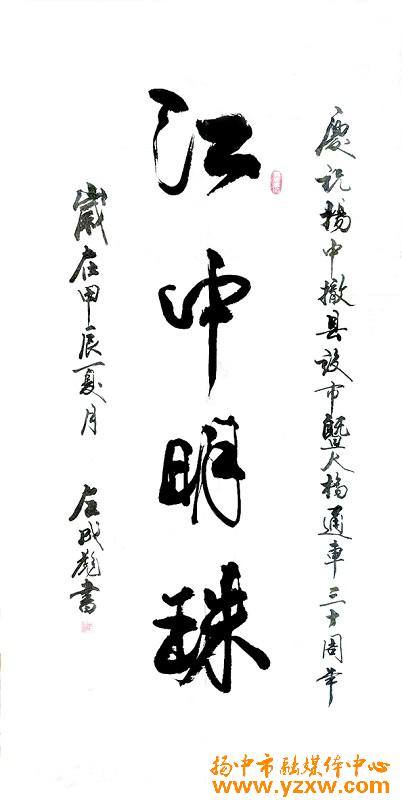 慶祝揚中撤县設市暨大橋通車三十周年
江中明珠
歲在甲辰夏月 左成彪書
扬中市融媒体中心
www.yzxw.com